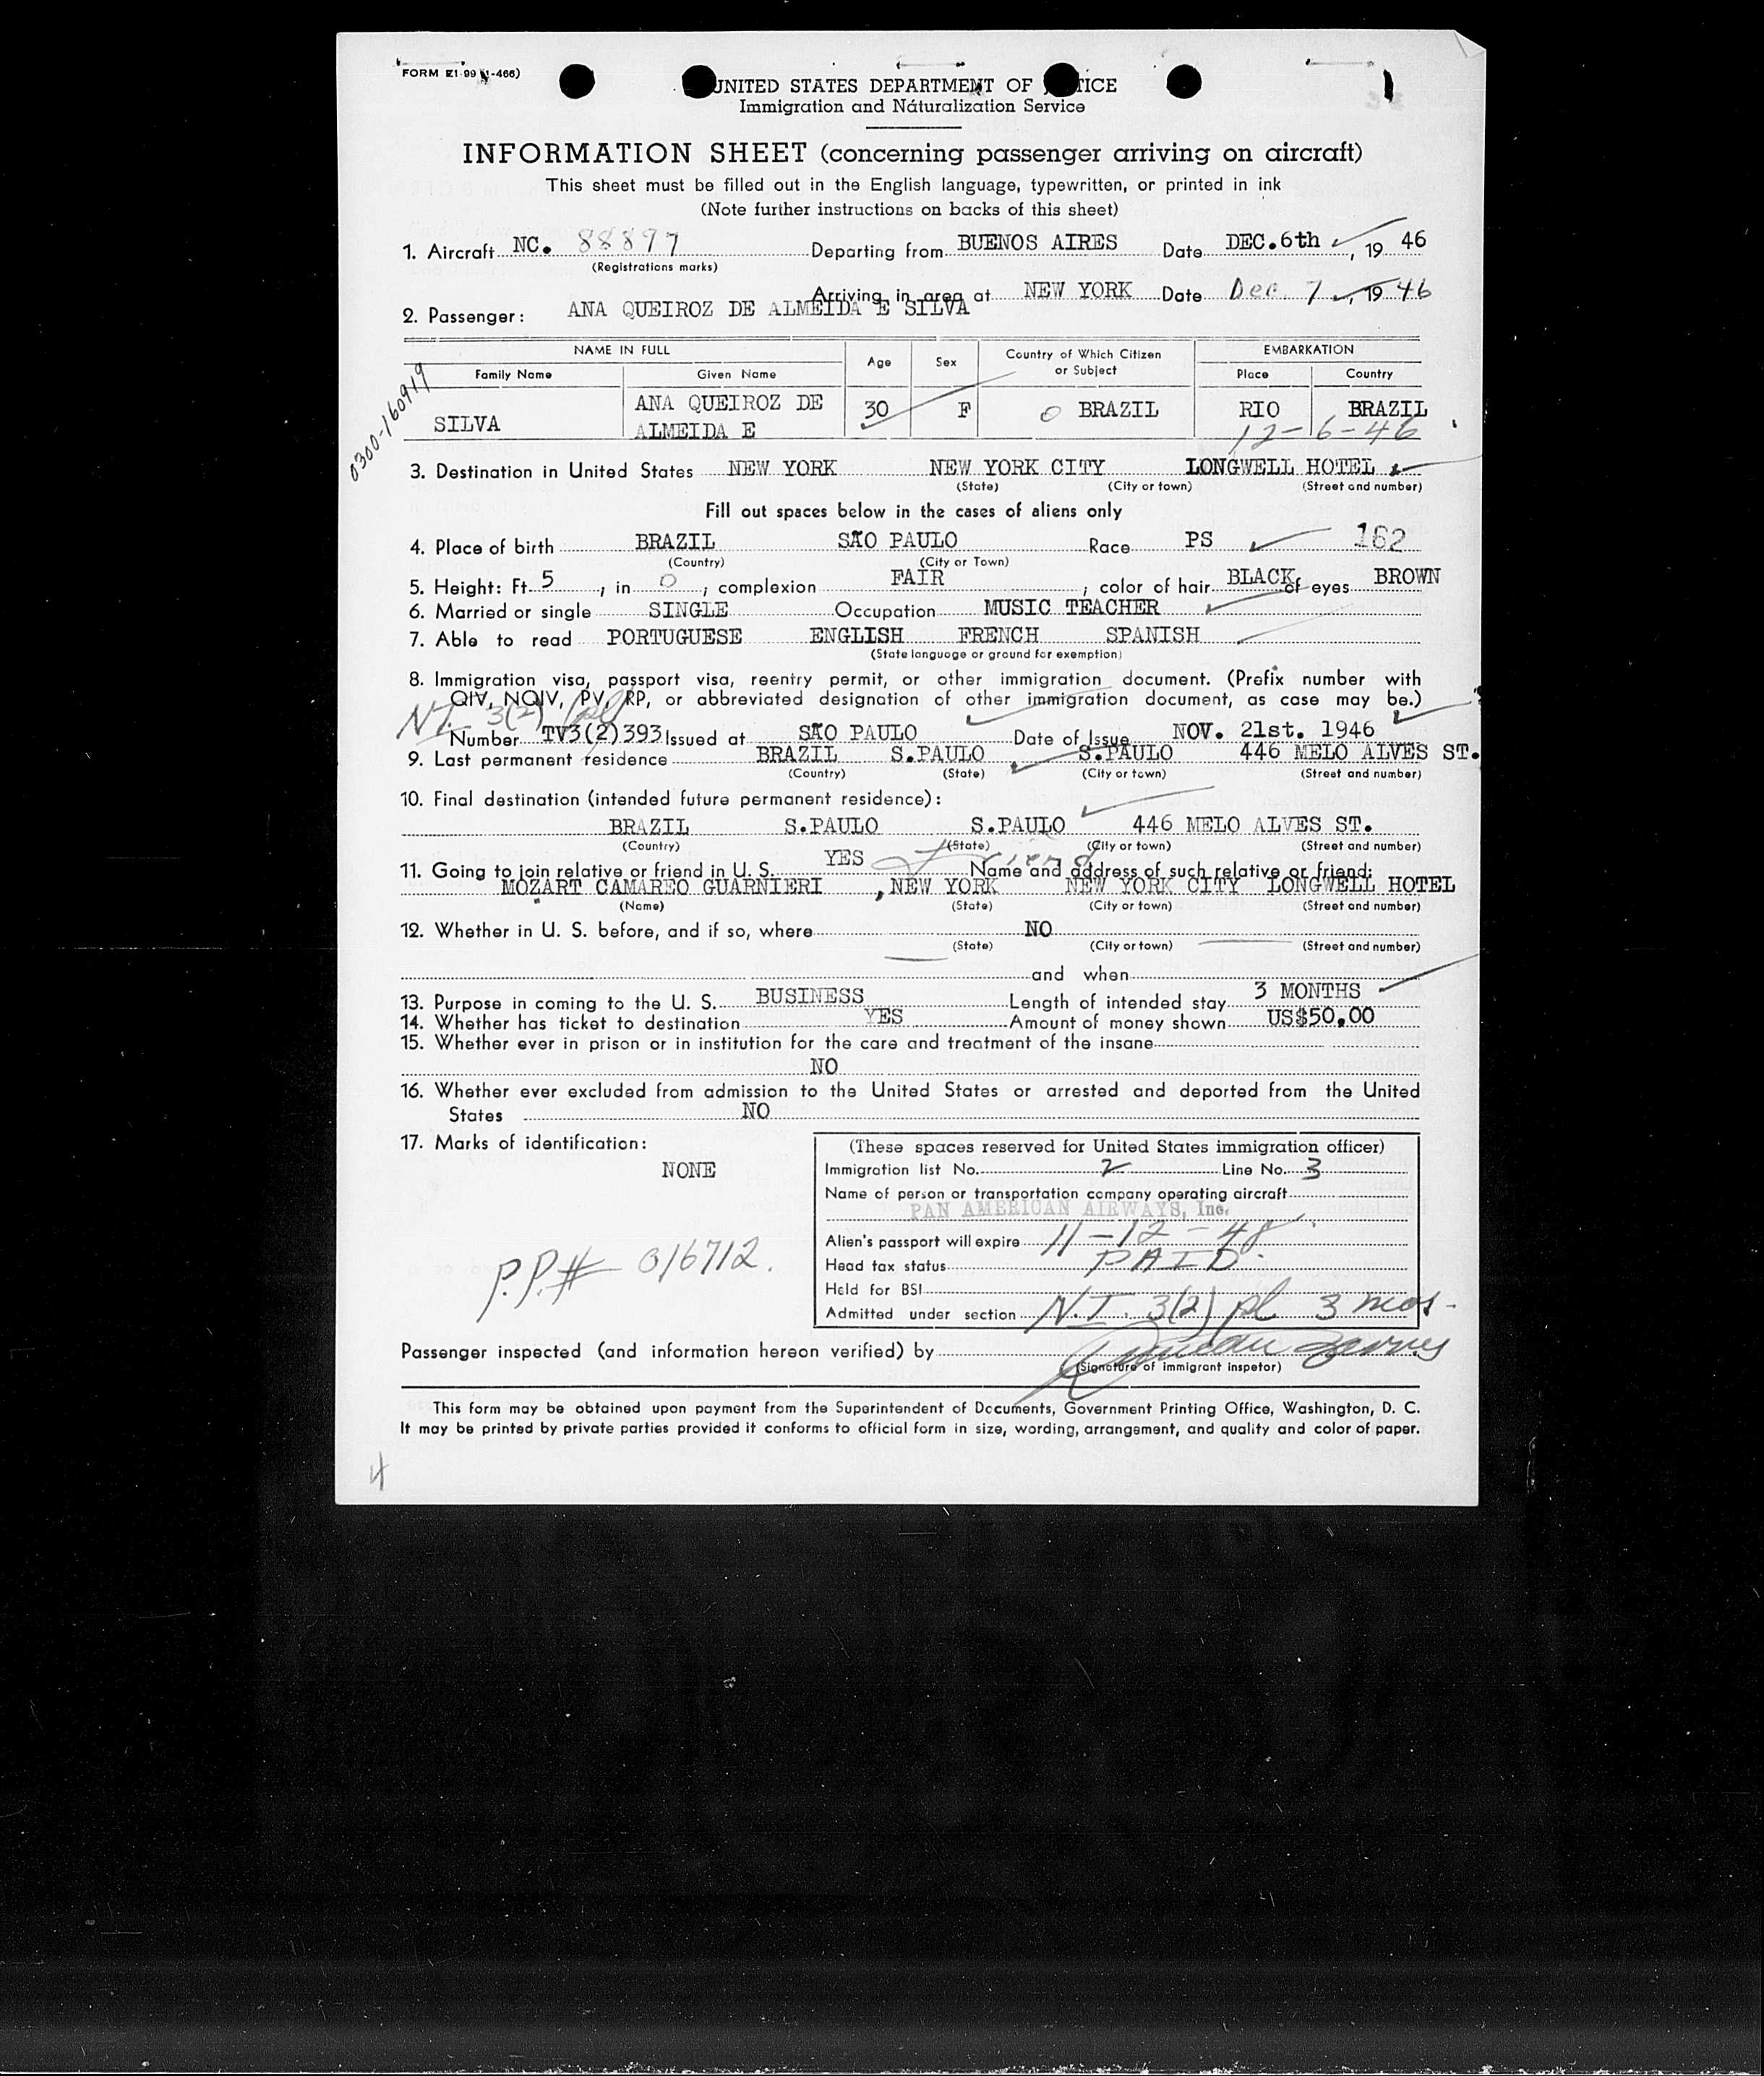 FORM
UNITED STATES DEPARTMENT OF JUSTICE
Immigration and Naturalization Service
INFORMATION SHEET (concerning passenger arriving on aircraft)
This sheet must be filled out in the English language, typewritten, or printed in ink
(Note further instructions on backs of this sheet)
1. Aircraft NC. 88897 Departing from BUENOS AIRES Date DEC.6th, 19 46
(Registrations marks)
Arriving in area at NEW YORK Date Dec. 7, 19 46
2. Passenger: ANA QUEIROZ DE ALMEIDA E SILVA
NAME IN FULL Age Sex Country of Which Citizen or Subject EMBARKATION
Family Name Given Name Place Country
SILVA ANA QUEIROZ DE ALMEIDA E 30 F BRAZIL RIO BRAZIL
12-6-46
0300-160919
3. Destination in United States NEW YORK NEW YORK CITY LONGWELL HOTEL
(State) (City or town) (Street and number)
Fill out spaces below in the cases of aliens only
4. Place of birth BRAZIL SÃO PAULO Race PS 162
(Country) (City or Town)
5. Height: Ft. 5, in 0, complexion FAIR; color of hair BLACK of eyes BROWN
6. Married or single SINGLE Occupation MUSIC TEACHER
7. Able to read PORTUGUESE ENGLISH FRENCH SPANISH
(State language or ground for exemption)
8. Immigration visa, passport visa, reentry permit, or other immigration document. (Prefix number with
QIV, NQIV, PV, RP, or abbreviated designation of other immigration document, as case may be.)
N.I. 3(2) pl
Number TV3(2)393 Issued at SÃO PAULO Date of Issue NOV. 21st. 1946
9. Last permanent residence BRAZIL S.PAULO S.PAULO 446 MELO ALVES ST.
(Country) (State) (City or town) (Street and number)
10. Final destination (intended future permanent residence):
BRAZIL S.PAULO S.PAULO 446 MELO ALVES ST.
(Country) (State) (City or town) (Street and number)
11. Going to join relative or friend in U. S. YES Friend Name and address of such relative or friend:
MOZART CAMARGO GUARNIERI, NEW YORK NEW YORK CITY LONGWELL HOTEL
(Name) (State) (City or town) (Street and number)
12. Whether in U. S. before, and if so, where NO
(State) (City or town) (Street and number)
and when
13. Purpose in coming to the U. S. BUSINESS Length of intended stay 3 MONTHS
14. Whether has ticket to destination YES Amount of money shown US$50.00
15. Whether ever in prison or in institution for the care and treatment of the insane
NO
16. Whether ever excluded from admission to the United States or arrested and deported from the United
States NO
17. Marks of identification:
NONE
P.P.# 016712.
(These spaces reserved for United States immigration officer)
Immigration list No. 2 Line No. 3
Name of person or transportation company operating aircraft
PAN AMERICAN AIRWAYS, Inc.
Alien's passport will expire 11-12-48
Head tax status PAID
Held for BSI
Admitted under section N.I. 3(2) pl 3 mos-
Passenger inspected (and information hereon verified) by
(Signature of immigrant inspetor)
This form may be obtained upon payment from the Superintendent of Documents, Government Printing Office, Washington, D. C.
It may be printed by private parties provided it conforms to official form in size, wording, arrangement, and quality and color of paper.
4